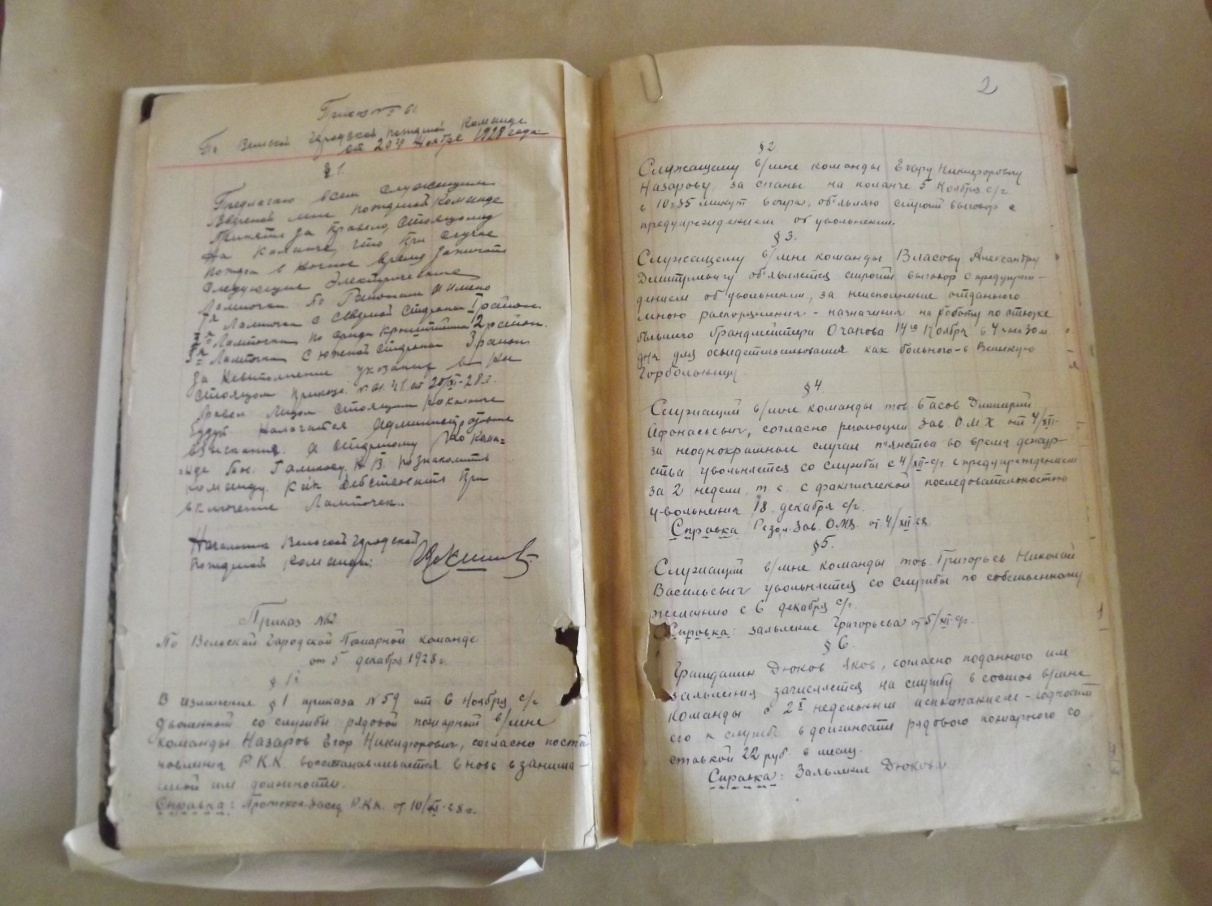 Приказ № 61
По Вельской городской пожарной команде
от 20 ноября 1928 года
§ 1.
Предлагаю всем служащим
вверенной мне пожарной команде
стоящему
на каланче, что при случае
пожара в ночное время зажигать
следующие электрические
лампочки по районам и именно
1-я Лампочка с северной стороны 1 район.
2-я Лампочка по 2 район.
3-я Лампочка с южной стороны 3 район
За невыполнение указания в на
стоящем приказе № 61 от 20/XI-28 г.
лицом стоящим на каланче
будут налагаться административные
взыскания. А старшему по кома-
нде тов. Галикову Н. В. познакомить
команду как действовать при
включение лампочек.
Начальник Вельской городской
пожарной команды:
Приказ № 62
По Вельской Городской Пожарной команде
от 5 декабря 1928 г.
§ 1.
В изменение § 1 приказа № 59 от 6 ноября с/г
уволенной со службы рядовой пожарный в/мне
команды Назаров Егор Никифорович, согласно поста
новления Р.К.К. восстанавливается вновь в занима
емой им должности.
Справка: Протокол засед. Р.К.К. от 10/XI-28 г.
2
§ 2
Служащему в/мне команды Егору Никифоровичу
Назарову, за спаньё на каланче 5 ноября с/г
в 10 ч 35 минут вечера, объявляю строгий выговор с
предупреждением об увольнении.
§ 3.
Служащему в/мне команды Власову Александру
Дмитриевичу объявляется строгий выговор с предупреж-
дением об увольнении, за неисполнение отданного
мною распоряжения - назначения на работу по отвозке
бывшего брандмейстера Очапова 14го ноября в 4 часа
дня для освидетельствования как больного в Вельскую
горбольницу
§ 4
Служащий в/мне команды тов. Басов Дмитрий
Афанасьевич, согласно резолюции Зав. О.М.Х от 4/XII-
за неоднократные случаи пьянства во время дежур-
ства увольняется со службы с 4/XII-с/г с предупреждением
за 2 недели, т. е. с фактической последовательностью
увольнения 18 декабря с/г.
Справка: Резол. Зав. О.М.Х. от 4/XII-28
§ 5.
Служащий в/мне команды тов. Григорьев Николай
Васильевич увольняется со службы по собственному
желанию с 6 декабря с/г.
Справка: заявление Григорьева от 5/XII-с/г.
§ 6.
Гражданин Дюков Яков, согласно поданного им
заявления зачисляется на службу в состав в/мне
команды с 2х недельным испытанием - годности
его к службе в должности рядового пожарного со
ставкой 22 руб. в месяц.
Справка: Заявление Дюкова.